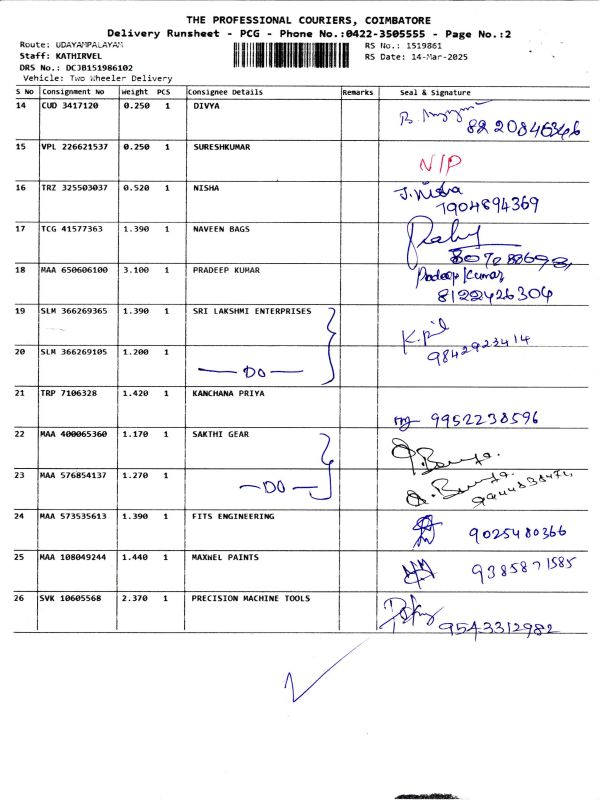 THE PROFESSIONAL COURIERS, COIMBATORE
Delivery Runsheet - PCG - Phone No.:0422-3505555 - Page No.:2
Route: UDAYAMPALAYAM RS No.: 1519861
Staff: KATHIRVEL RS Date: 14-Mar-2025
DRS No.: DCJB151986102
Vehicle: Two Wheeler Delivery
S No Consignment No Weight PCS Consignee Details Remarks Seal & Signature
14 CUD 3417120 0.250 1 DIVYA
15 VPL 226621537 0.250 1 SURESHKUMAR N/P
16 TRZ 325503037 0.520 1 NISHA J.Nisha
7904894369
17 TCG 41577363 1.390 1 NAVEEN BAGS
18 MAA 650606100 3.100 1 PRADEEP KUMAR Pradeep Kumar
8122426304
19 SLM 366269365 1.390 1 SRI LAKSHMI ENTERPRISES
9842923414
20 SLM 366269105 1.200 1
— DO —
21 TRP 7106328 1.420 1 KANCHANA PRIYA
9952238596
22 MAA 400065360 1.170 1 SAKTHI GEAR
23 MAA 576854137 1.270 1 — DO —
24 MAA 573535613 1.390 1 FITS ENGINEERING 9025480366
25 MAA 108049244 1.440 1 MAXWEL PAINTS 9385871585
26 SVK 10605568 2.370 1 PRECISION MACHINE TOOLS
9543312982